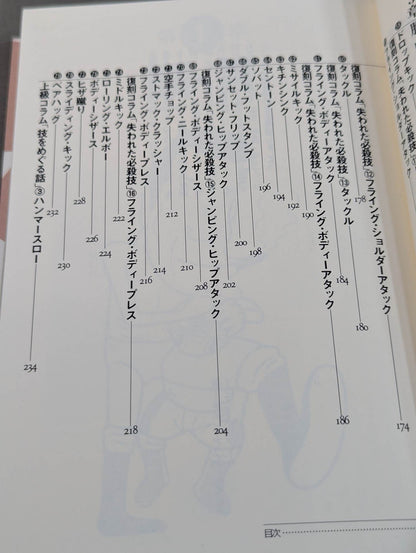 復刻コラム「失われた必殺技」⑫フライング・ショルダーアタック 174
タックル 178
復刻コラム「失われた必殺技」⑬タックル 180
フライング・ボディーアタック 184
復刻コラム「失われた必殺技」⑭フライング・ボディーアタック 186
ミサイルキック 190
キチンシンク 192
セントーン 194
ソバット 196
ダブル・フットスタンプ 198
サンセット・フリップ 200
ジャンピング・ヒップアタック 202
復刻コラム「失われた必殺技」⑮ジャンピング・ヒップアタック 204
フライング・ボディーシザース 208
フライング・ニールキック 210
空手チョップ 212
ストマック・クラッシャー 214
フライング・ボディープレス 216
復刻コラム「失われた必殺技」⑯フライング・ボディープレス 218
ミドルキック 222
ローリング・エルボー 224
ボディーシザース 226
ヒザ蹴り 228
スライディング・キック 230
ベアハッグ 232
上級コラム「技をめぐる話」③ハンマースロー 234
目次